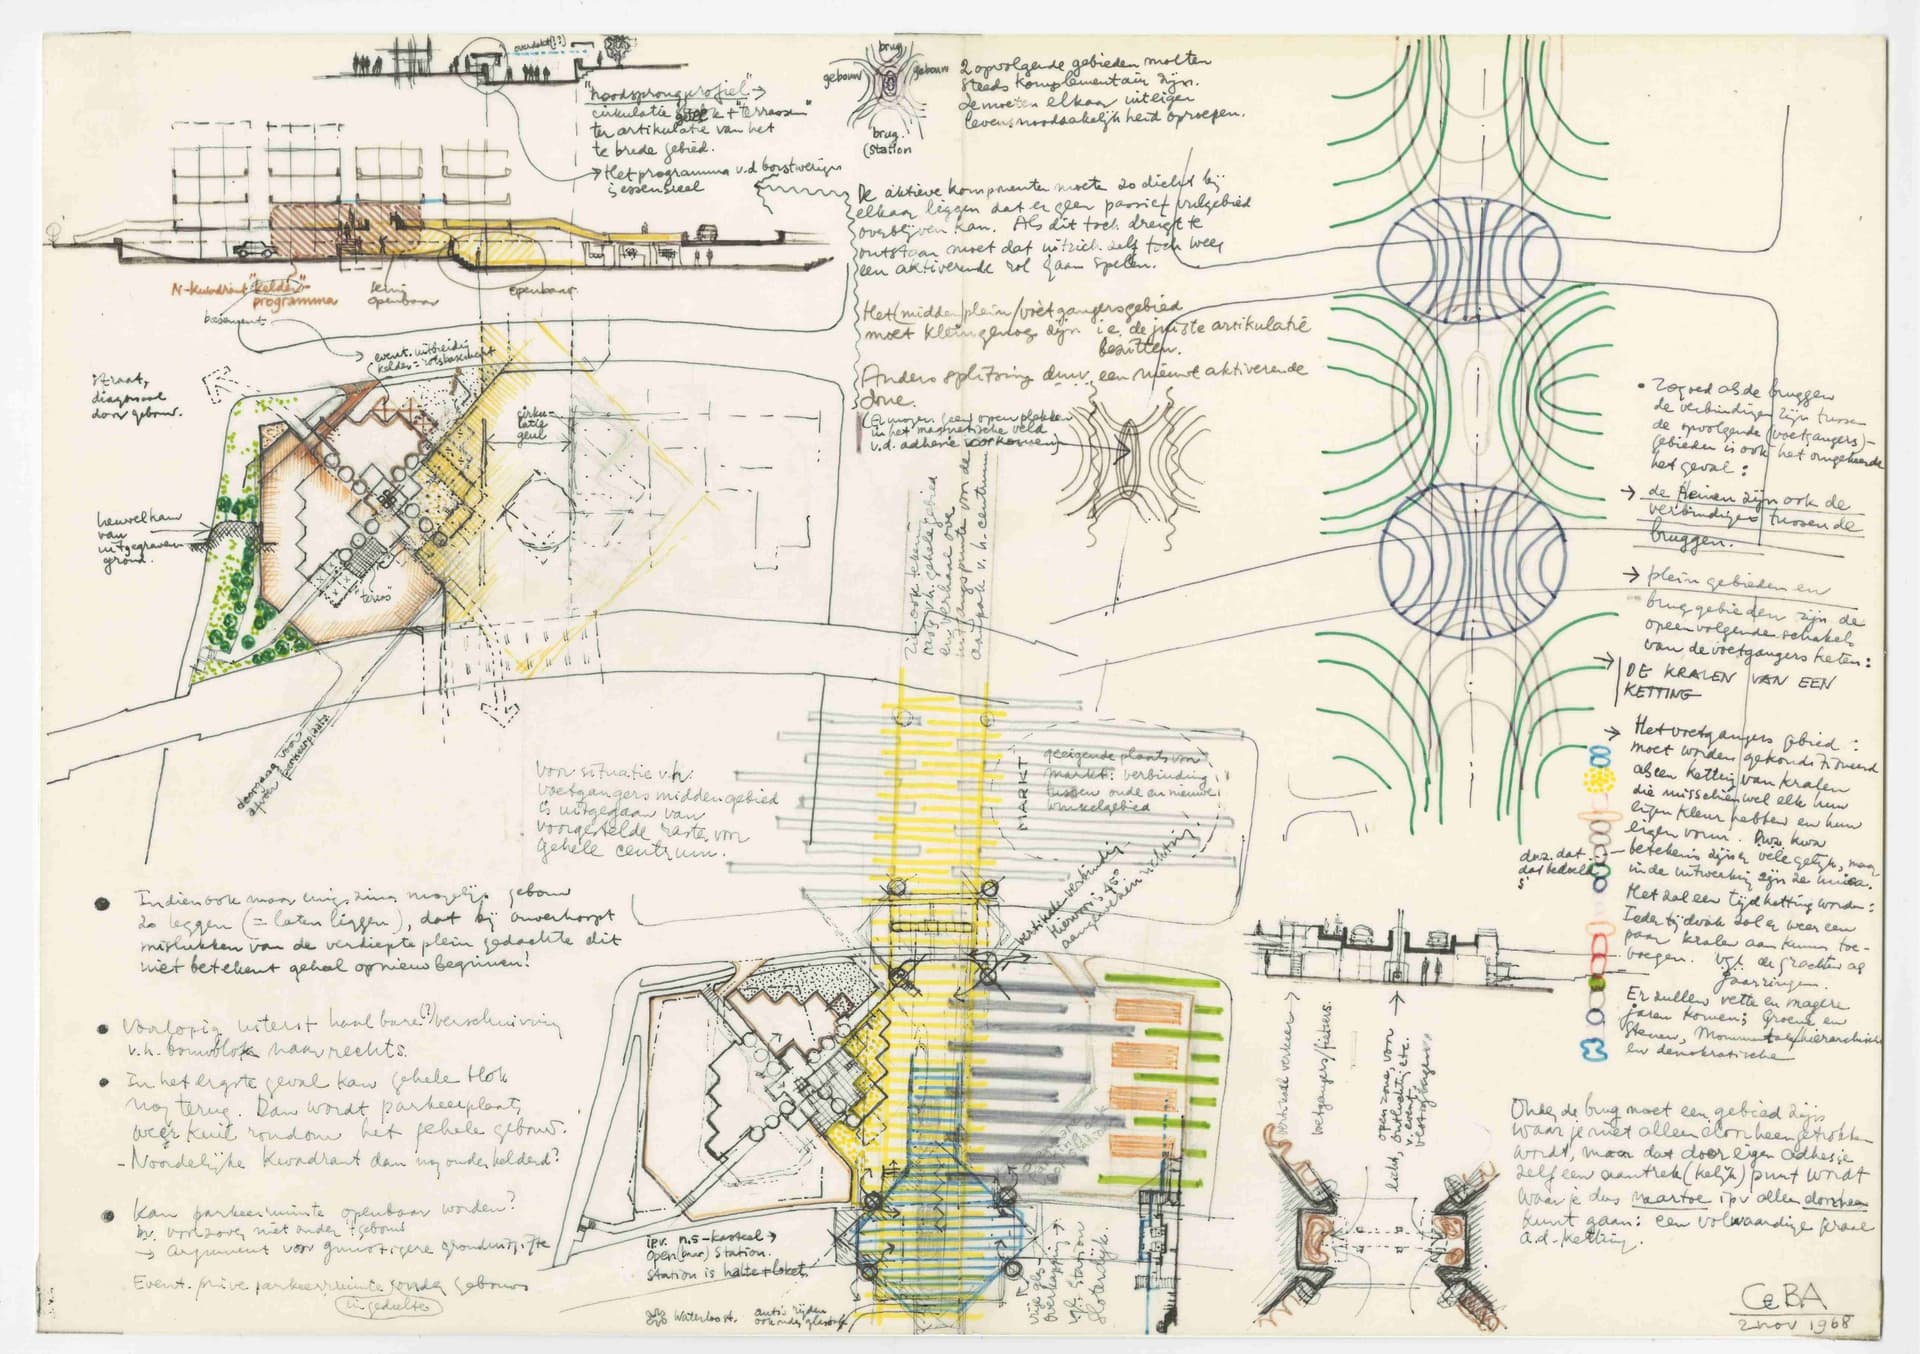 overdekt(?)
"noodsprongprofiel" →
cirkulatie + "terrassen"
ter artikulatie van het
te brede gebied.
→ Het programma v.d borstweringen
is essensieel
brug
gebouw
gebouw
brug
(station
2 opvolgende gebieden moeten
steeds komplementair zijn.
Ze moeten elkaar uit eigen
levensnoodzakelijkheid oproepen.
De aktieve komponenten moeten zo dicht bij
elkaar liggen dat er geen passief vulgebied
overblijven kan. Als dit toch dreigt te
ontstaan moet dat uitzich zelf toch weer
een aktiverende rol gaan spelen.
Het (midden) plein/voetgangersgebied
moet klein genoeg zijn i.e. de juiste artikulatie
bezitten.
Anders splitsing door een nieuwe aktiverende
zone.
(Er mogen geen open plekken
in het magnetische veld
v.d. adhesie voorkomen)
N-kwadrant "kelder"
programma
semi
openbaar
openbaar
basement
event. uitbreiding
kelder = rotsbasement
straat,
diagonaal
door gebouw.
cirku-
latie
geul
heuvel kan
van
uitgegraven
grond.
"terras"
doorgang voor
parkeerplaats
Voor situatie v.h.
voetgangers middengebied
is uitgegaan van
voorgestelde raster voor
gehele centrum.
MARKT
geeigende plaats voor
markt: verbinding
tussen oude en nieuwe
winkelgebied
vertikale verbinding
hiervoor is 45°
aangewezen richting.
• Indien ook maar enigszins mogelijk gebouw
zo leggen (= laten liggen), dat bij onverhoopt
mislukken van de verdiepte plein gedachte dit
niet betekent geheel opnieuw beginnen!
• Voorlopig uiterst haalbare(?) verschuiving
v.h. bouwblok naar rechts.
• In het ergste geval kan gehele blok
nog terug. Dan wordt parkeerplaats
weer kuil rondom het gehele gebouw.
- Noordelijke kwadrant dan nog onderkelderd?
• Kan parkeerruimte openbaar worden?
bv. voorzover niet onder gebouw
→ argument voor gunstigere
Event. privé parkeerruimte onder gebouw
ipv. n.s-kasteel →
open(baar) station.
Station is halte + loket.
Waterloost.
auto's rijden
ook onder
vgl. station
Sloterdijk.
vertikaal verkeer
voetgangers/fietsers
open zone, voor
licht, ontluchting etc.
• Zo goed als de bruggen
de verbindingen zijn tussen
de opvolgende (voetgangers)-
gebieden is ook het omgekeerde
het geval:
→ de pleinen zijn ook de
verbindingen tussen de
bruggen.
→ plein gebieden en
brug gebieden zijn de
opeenvolgende schakels
van de voetgangers keten:
→ DE KRALEN VAN EEN
KETTING
→ Het voetgangers gebied:
moet worden gekonditioneerd
als een ketting van kralen
die misschien wel elk hun
eigen kleur hebben en hun
eigen vorm. Qua
betekenis zijn er vele gelijk, maar
in de uitwerking zijn ze uniek.
Het zal een tijdketting worden:
Ieder tijdvak zal er weer een
paar kralen aan kunnen toe-
voegen. Vgl. de grachten als
jaarringen.
Er zullen vette en magere
jaren komen; Groene en
Stenen, Monumentale/hierarchische
en demokratische
Onder de brug moet een gebied zijn
waar je niet alleen doorheen getrokken
wordt, maar dat door eigen adhesie
zelf een aantrek(kelijk) punt wordt
waar je dus naartoe ipv alleen doorheen
kunt gaan: een volwaardige kraal
a.d. ketting.
CeBA
2 nov 1968